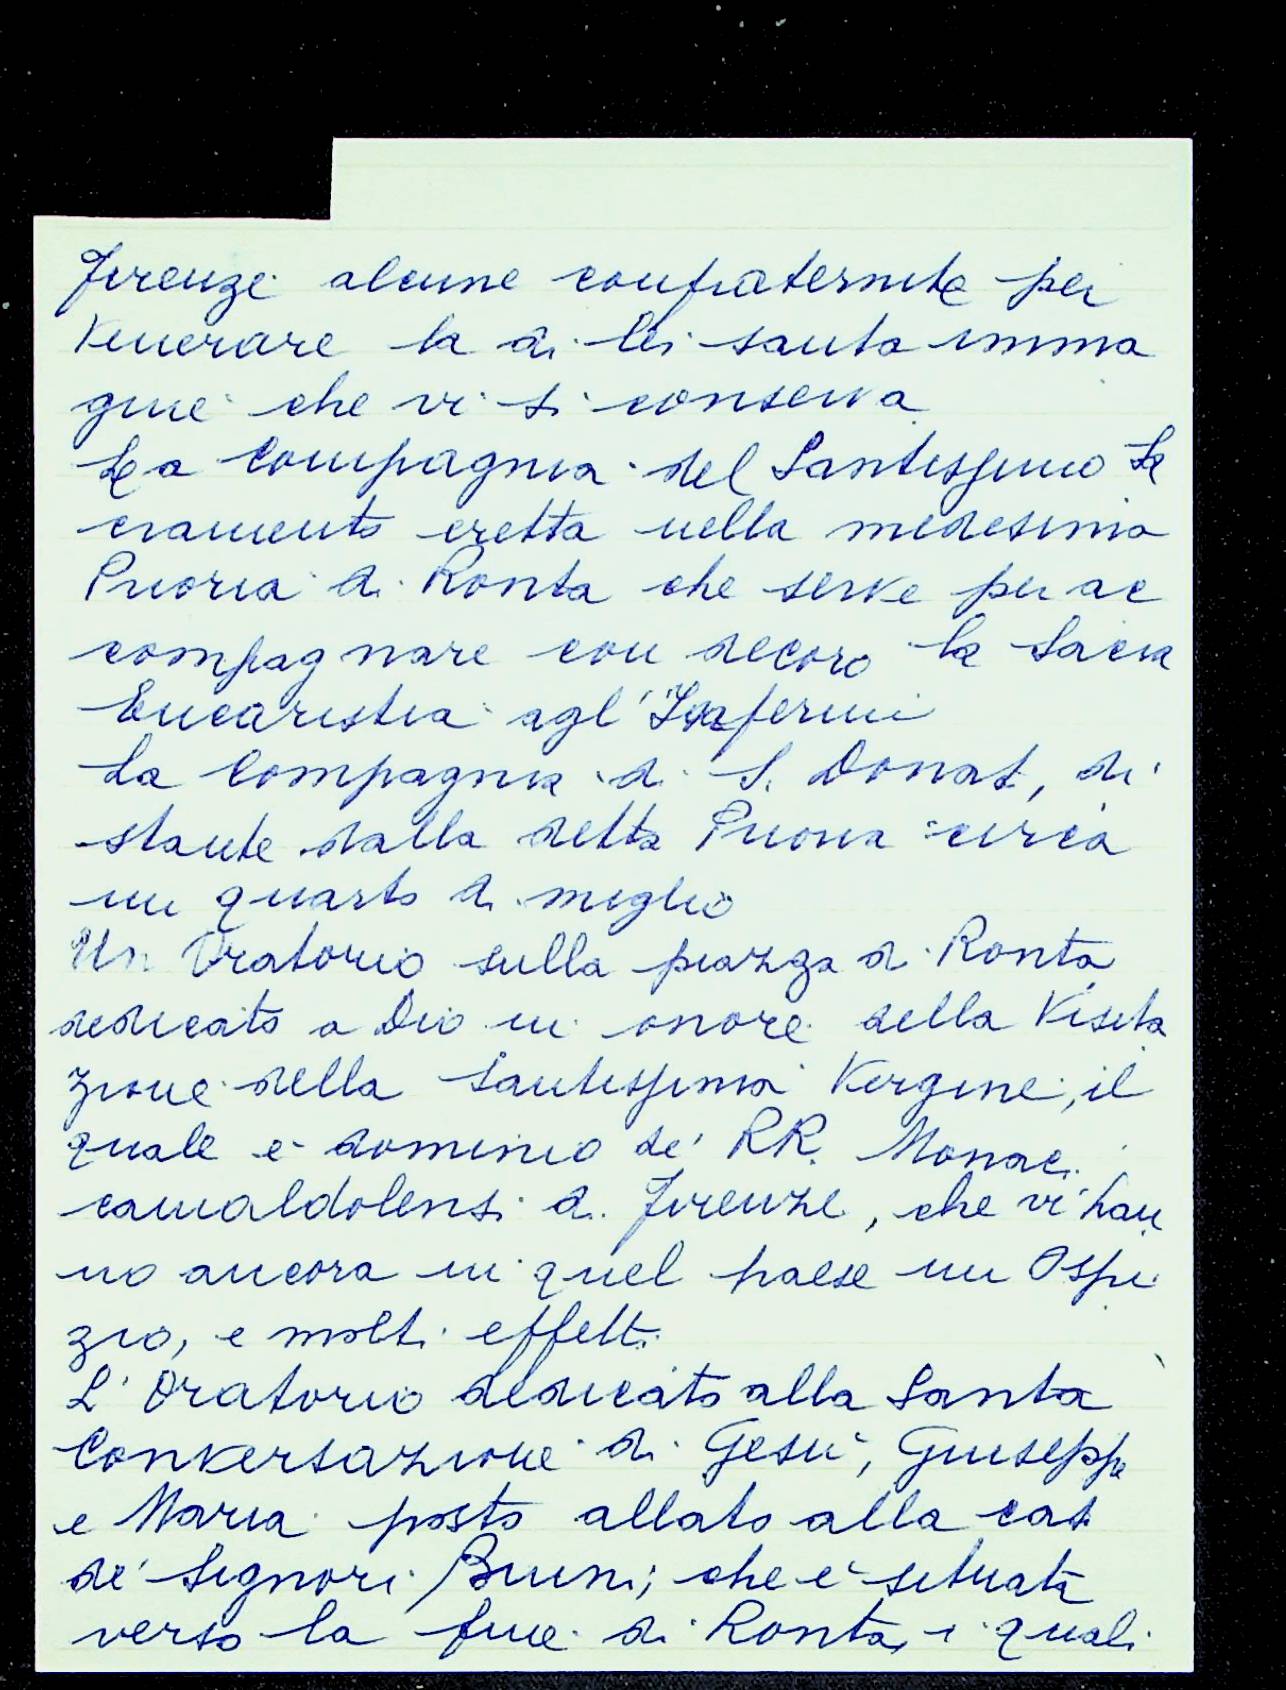 Firenze alcune confraternite per
venerare la di lei santa imma
gine che vi si conserva
La Compagnia del Santissimo Sa
cramento eretta nella medesima
Prioria di Ronta che serve per ac
compagnare con decoro la Sacra
Eucaristia agl'Infermi
La Compagnia di S. Donat, di
stante dalla detta Prioria circa
un quarto di miglio
Un Oratorio sulla piazza di Ronta
dedicato a Dio in onore della Visita
zione della Santissima Vergine, il
quale è dominio de' RR. Monaci
camaldolensi di Firenze, che vi han
no ancora in quel paese un Ospi
zio, e molti effetti
L'Oratorio dedicato alla Santa
Conversazione di Gesù, Giuseppe
e Maria posto allato alla casa
de' Signori Bruni; che è situata
verso la fine di Ronta, i quali